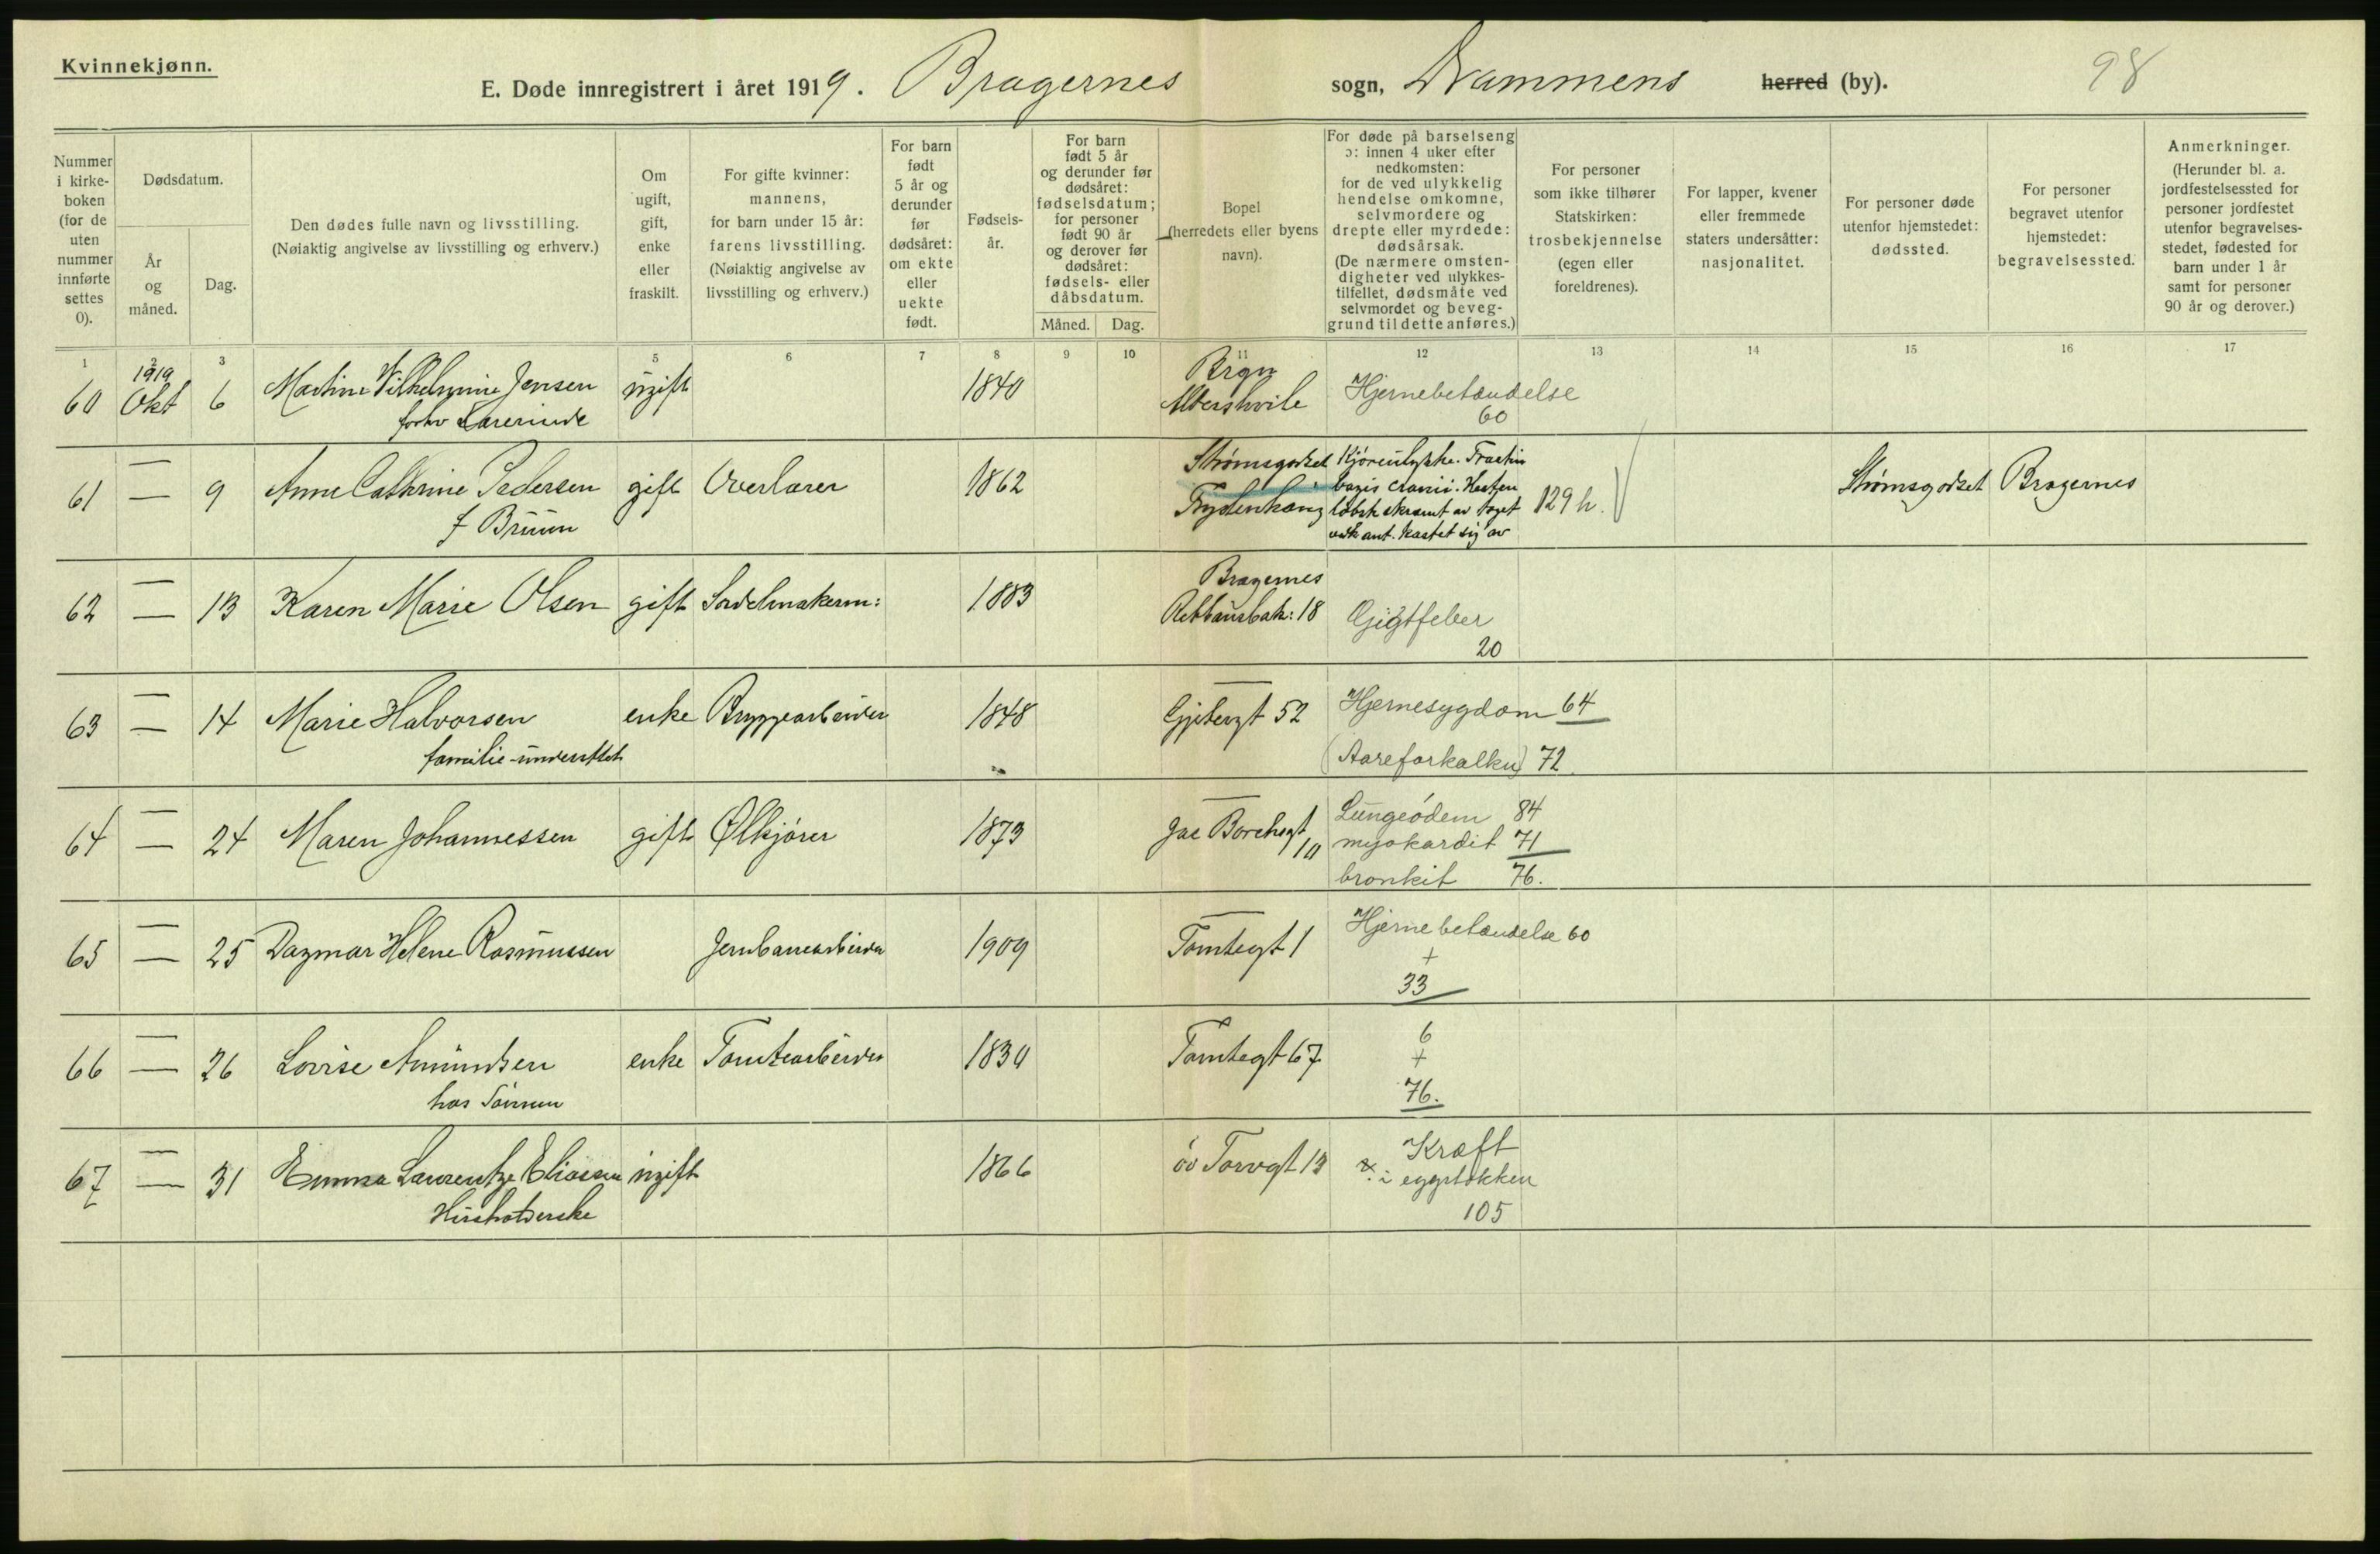 Kvinnekjønn.
E. Døde innregistrert i året 1919. Bragernes sogn, Drammens herred (by). 98
Nummer i kirke-boken (for de uten nummer innførte settes 0).
Dødsdatum.
År og måned.
Dag.
Den dødes fulle navn og livsstilling.
(Nøiaktig angivelse av livsstilling og erhverv.)
Om ugift, gift, enke eller fraskilt.
For gifte kvinner: mannens, for barn under 15 år: farens livsstilling. (Nøiaktig angivelse av livsstilling og erhverv.)
For barn født 5 år og derunder før dødsåret: om ekte eller uekte født.
Fødsels-år.
For barn født 5 år og derunder før dødsåret: fødselsdatum; for personer født 90 år og derover før dødsåret: fødsels- eller dåbsdatum.
Måned. Dag.
Bopel (herredets eller byens navn).
For døde på barselseng ɔ: innen 4 uker efter nedkomsten: for de ved ulykkelig hendelse omkomne, selvmordere og drepte eller myrdede: dødsårsak. (De nærmere omsten-digheter ved ulykkes-tilfellet, dødsmåte ved selvmordet og beveg-grund til dette anføres.)
For personer som ikke tilhører Statskirken: trosbekjennelse (egen eller foreldrenes).
For lapper, kvener eller fremmede staters undersåtter: nasjonalitet.
For personer døde utenfor hjemstedet: dødssted.
For personer begravet utenfor hjemstedet: begravelsessted.
Anmerkninger. (Herunder bl. a. jordfestelsessted for personer jordfestet utenfor begravelses-stedet, fødested for barn under 1 år samt for personer 90 år og derover.)
1 2 3 5 6 7 8 9 10 11 12 13 14 15 16 17
60 1919 Okt 6 Martine Vilhelmine Jensen ugift 1840 Brgn Hjernebetændelse
forhv Lærerinde Aldershvile 60
61 — 9 Anne Cathrine Pedersen gift Overlærer 1862 Strømsgodset Kjøreulykke. Fractur
basis cranii. Hesten
f Bruun løbsk skræmt av toget 129 h. Strømsgodset Bragernes
vedk ant. kastet sig av
62 — 13 Karen Marie Olsen gift Sadelmakerm: 1883 Bragernes
Rebbansbak: 18 Gigtfeber
20
63 — 14 Marie Halvorsen enke Bryggearbeider 1848 — Gjetergt 52 Hjernesygdom 64
familie-understøt (Aareforkalkn) 72
64 — 24 Maren Johannessen gift Ølkjører 1873 — Jac Borchsgt 10 Lungeödem 84
myokardit 71
bronkit 76.
65 — 25 Dagmar Helene Rasmussen Jernbanearbeider 1909 — Tomtegt 1 Hjernebetændelse 60
+
33
66 — 26 Lovise Amundsen enke Tomtearbeider 1830 Tomtegt 67 6
+
hos Sønnen 76.
67 — 31 Emma Laurentze Eliassen ugift 1866 öv Torvgt 13 Kræft
i eggstokken
Husholderske 105